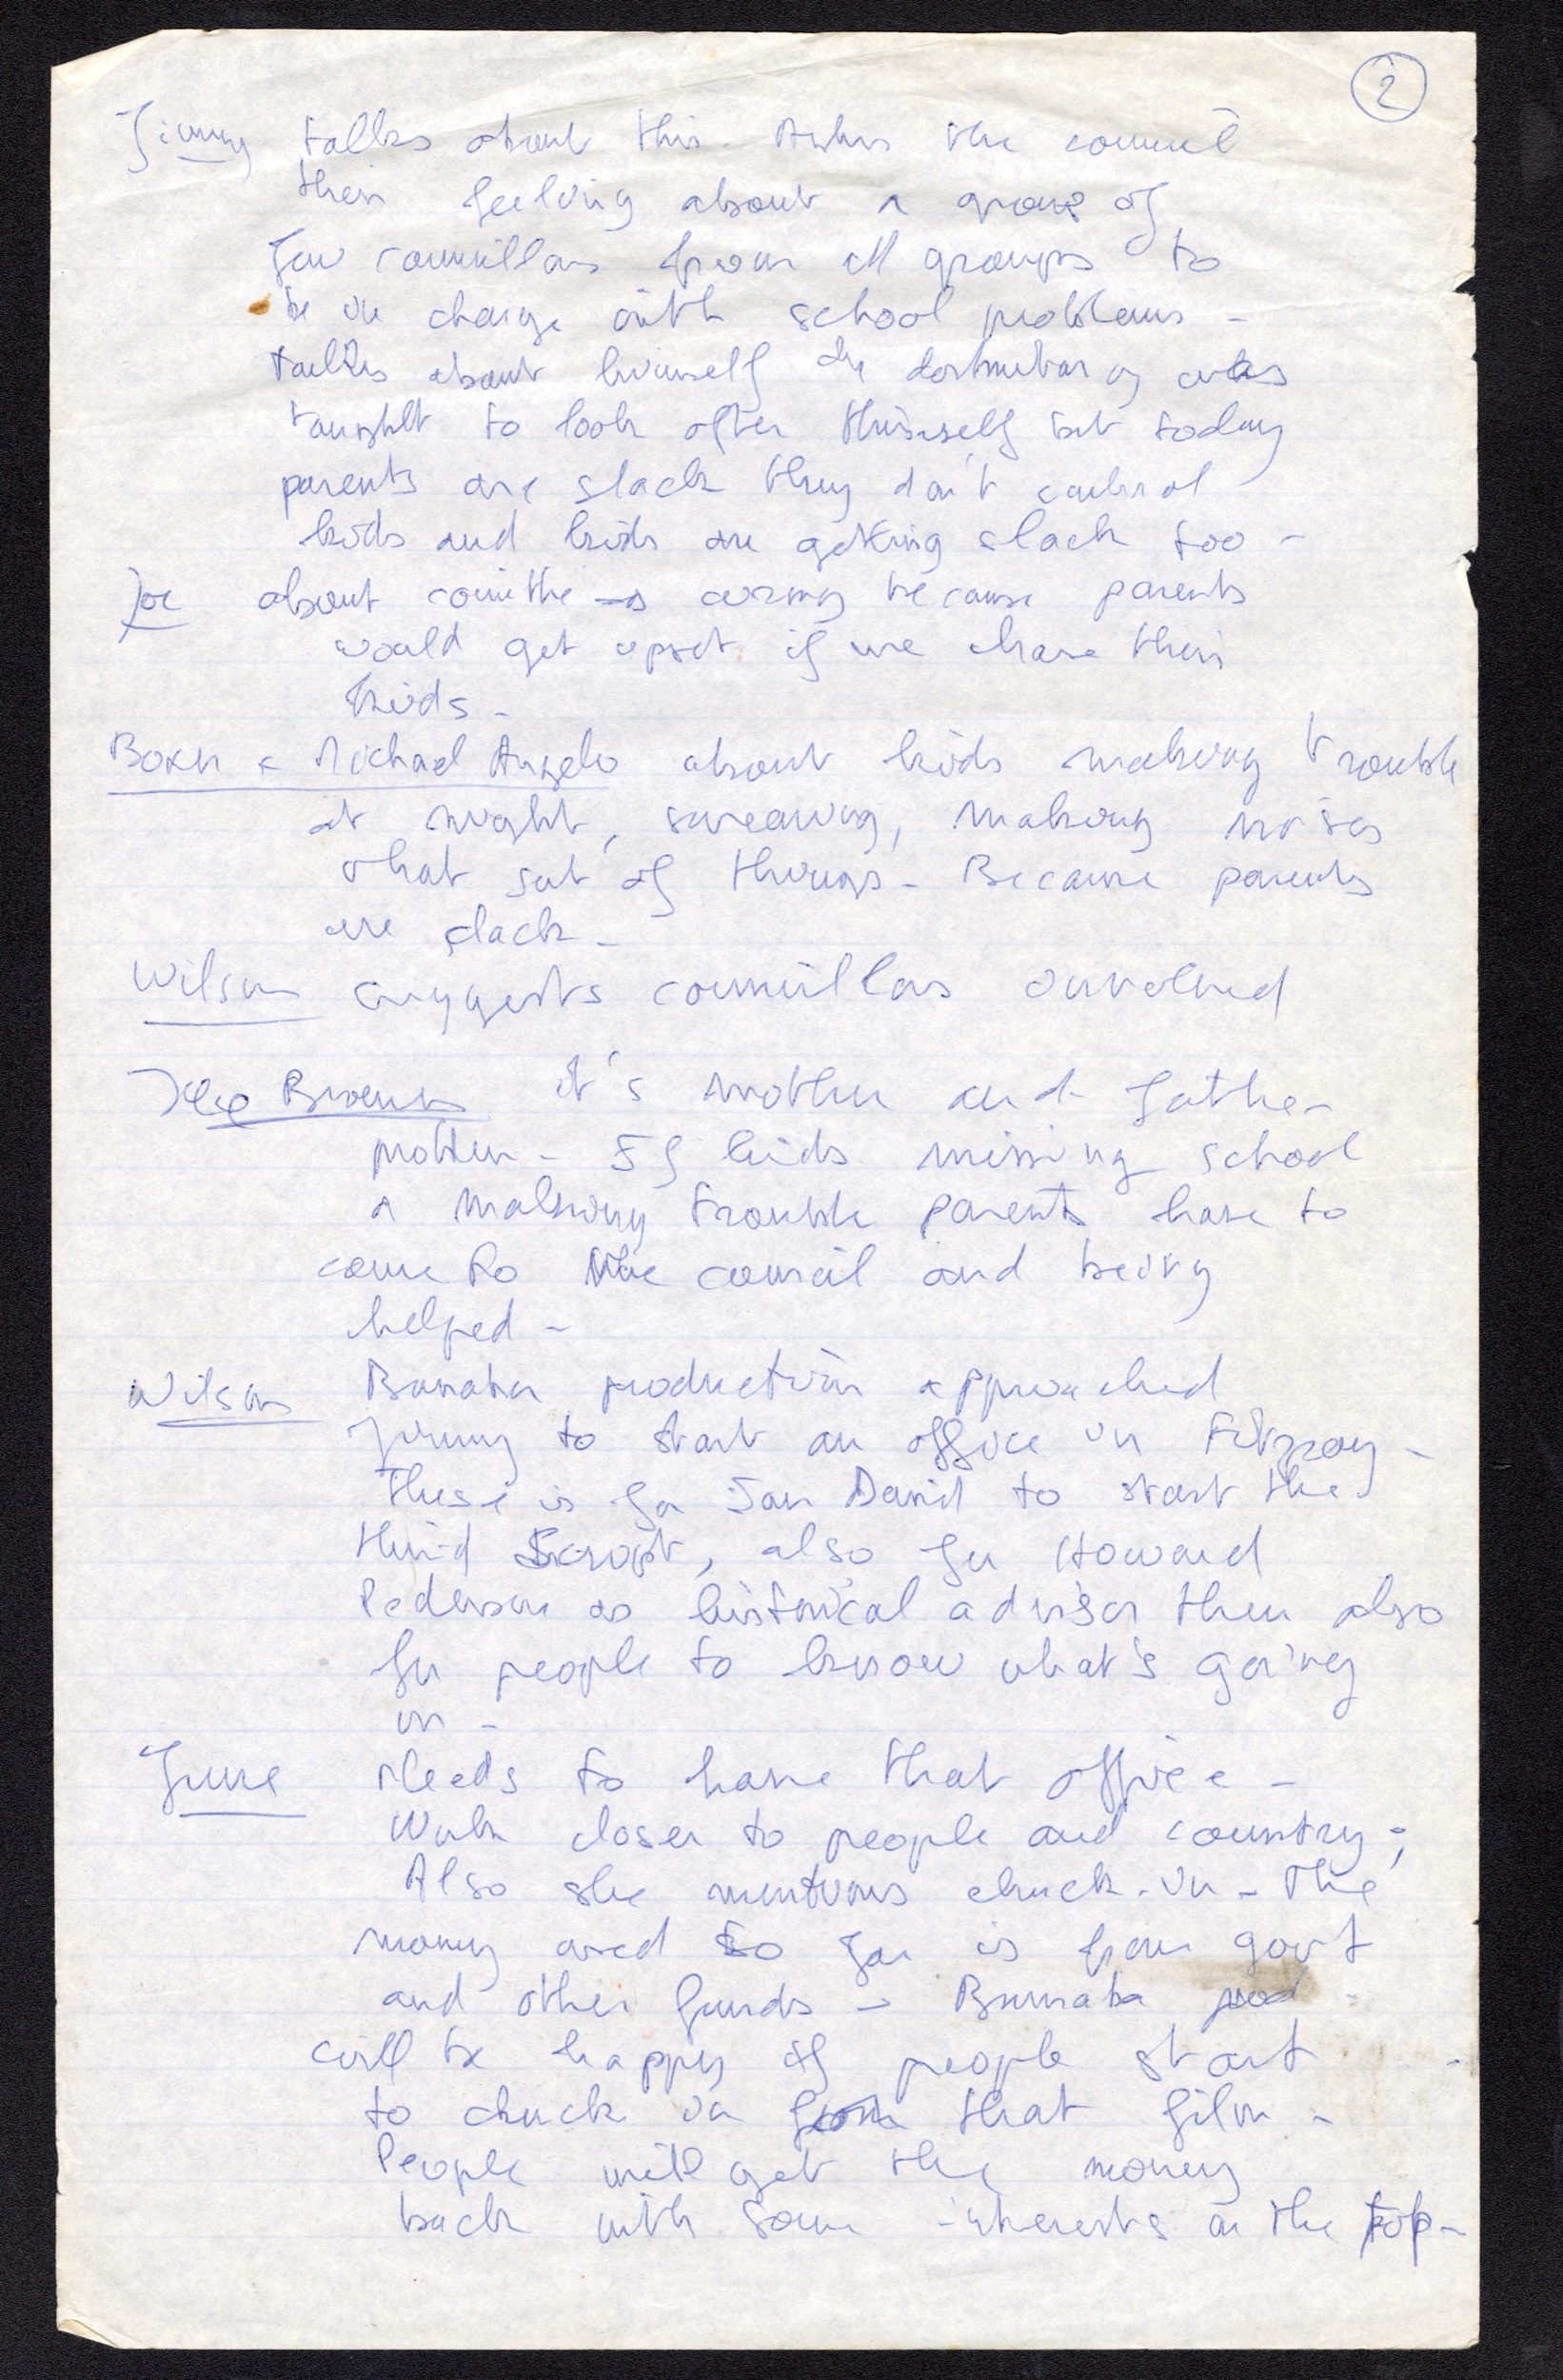 2
Jimmy talks about this. Asks the council
their feeling about a group of
few councillors from all groups to
be in charge with school problems -
talks about himself the was
taught to look after himself but today
parents are slack they don't control
kids and kids are getting slack too -
Joe about comitthe → wrong because parents
would get upset if we chase their
kids -
Boxer & Michael Angelo about kids making trouble
at night, screaming, making noises
that sort of things - Because parents
are slack -
Wilson suggests councillors involved
Brown it's mother and father
problem - If kids missing school
& making trouble parents have to
come to the council and being
helped -
Wilson Bunaba production approached
Jimmy to start an office in Fitzroy -
These is for Ian David to start the
third script, also for Howard
Pederson as historical adviser then also
for people to know what's going
on -
June needs to have that office -
Work closer to people and country;
Also she mentions chuck-in - The
money used so far is from govt
and other funds → Bunaba prod -
will be happy if people start
to chuck in for that film -
People will get the money
back with some interests on the top -